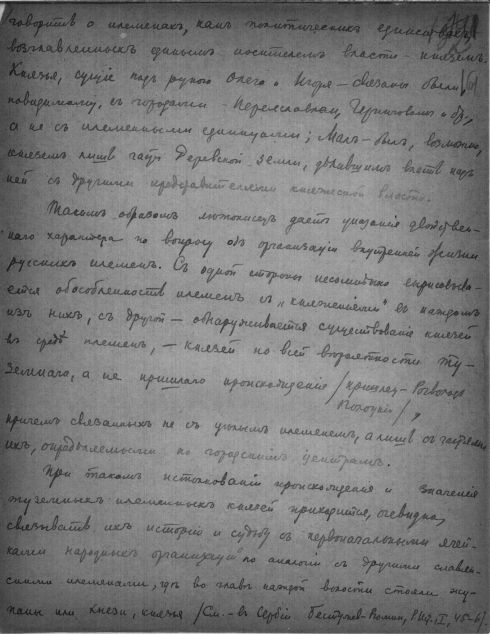 говорить о племенахъ, какъ политическихъ единицахъ,
возглавленныхъ единымъ носителемъ власти - княземъ.
Князья, сущіе подъ рукою Олега и Игоря - связаны были,
повидимому, съ городами - Переяславлем, Черниговомъ и др.,
а не съ племенными единицами; Малъ - былъ, возможно,
княземъ лишь части Деревской земли, дѣлившимъ власть надъ
ней съ другими представителями княжеской власти.
Такимъ образомъ лѣтописецъ даетъ указанія двойствен-
наго характера по вопросу объ организаціи внутренней жизни
русскихъ племенъ. Съ одной стороны несомнѣнно вырисовыва-
ется обособленность племенъ съ "княженіями" въ каждомъ
изъ нихъ, съ другой - обнаруживается существованіе князей
въ средѣ племенъ, - князей по всей вѣроятности ту-
земнаго, а не пришлаго происхожденія /пришлец - Рогволодъ
Полоцкій/,
причемъ связанныхъ не съ цѣлымъ племенемъ, а лишь съ частями
ихъ, опредѣляемыми по городскимъ центрамъ.
При такомъ истолкованіи происхожденія и значенія
туземныхъ племенныхъ князей приходится, очевидно,
связывать ихъ исторію и судьбу съ первоначальными ячей-
ками народныхъ организацій по аналогіи съ другими славян-
скими племенами, гдѣ во главѣ каждой волости стояли жу-
паны или кнези, князья /См. - въ Сербіи Бестужев-Рюмин, Р.Ист., I, 45-6/.